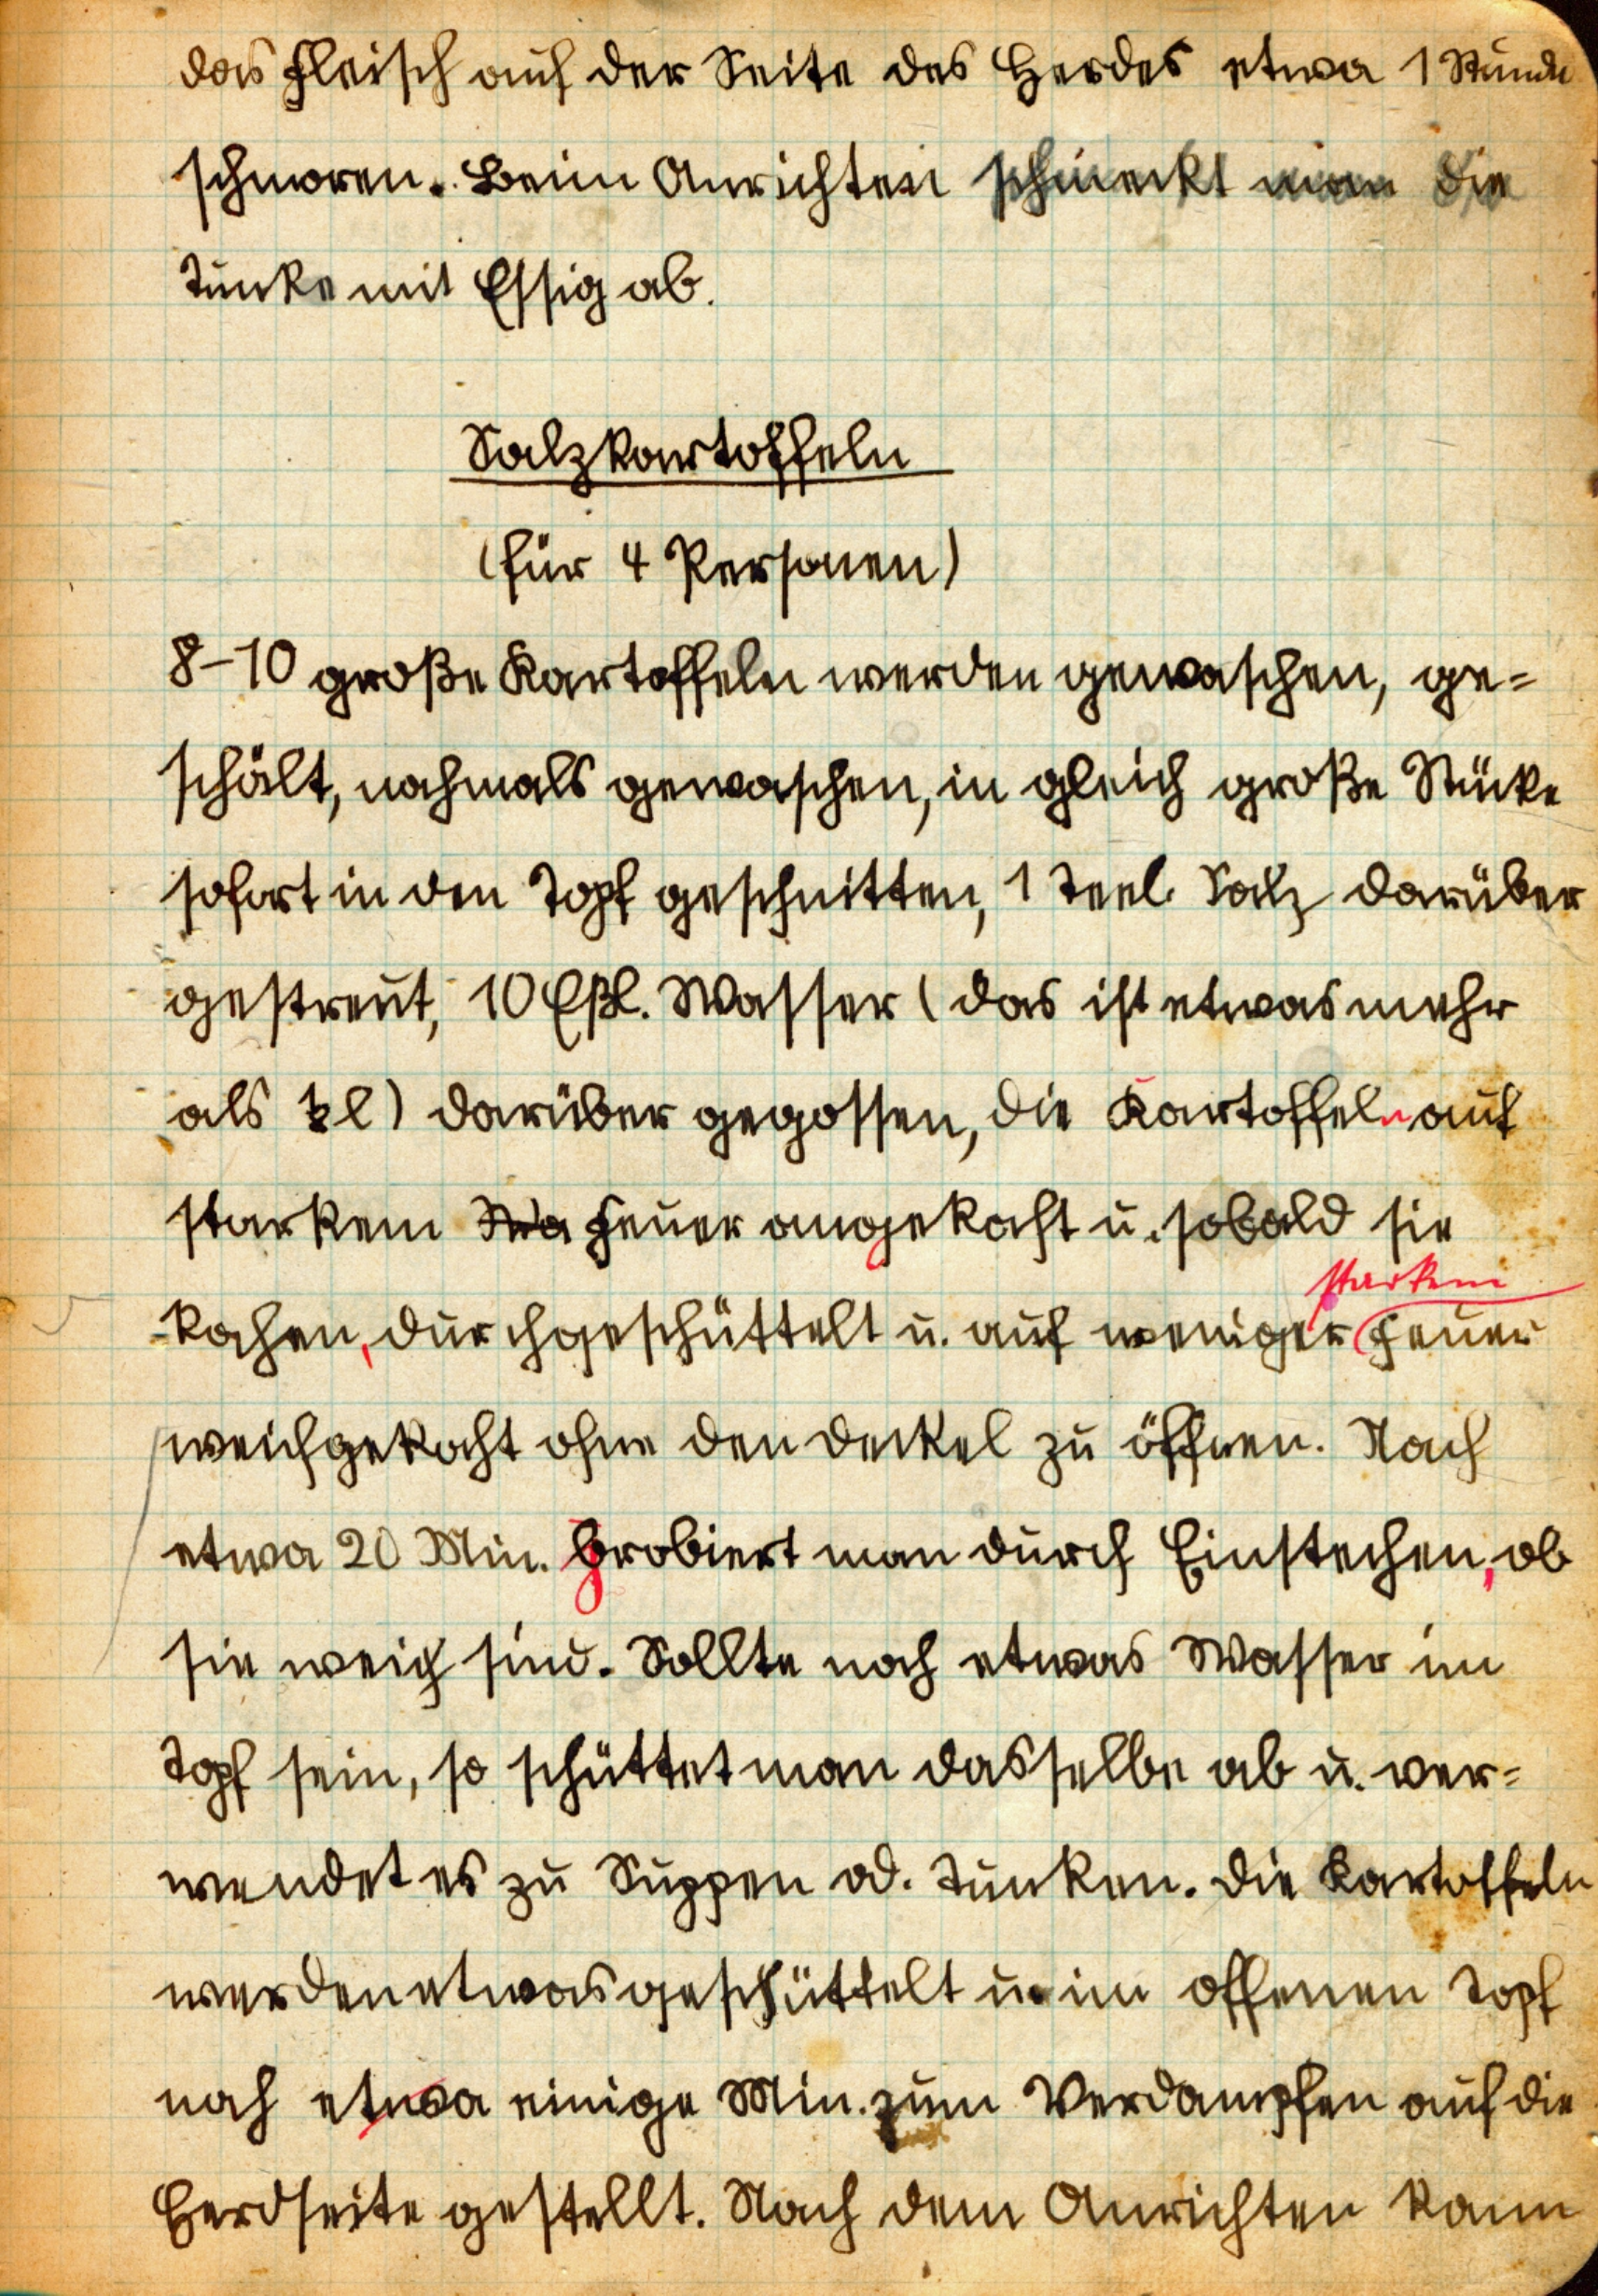 das Fleisch auf der Seite des Herdes etwa 1 Stunde
schmoren. Beim Anrichten schmeckt man die
Tunke mit Essig ab.
Salzkartoffeln
(für 4 Personen)
8-10 große Kartoffeln werden gewaschen, ge=
schält, nochmals gewaschen, in gleich große Stücke
sofort in den Topf geschnitten, 1 Teel. Salz darüber
gestreut, 10 Eßl. Wasser (das ist etwas mehr
als l) darüber gegossen, die Kartoffeln auf
starkem Feuer angekocht u. sobald sie
starkem
kochen, durchgeschüttelt u. auf weniger Feuer
weichgekocht ohne den Deckel zu öffnen. Nach
etwa 20 Min. probiert man durch Einstechen, ob
sie weich sind. Sollte noch etwas Wasser im
Topf sein, so schüttet man dasselbe ab u. ver=
wendet es zu Suppen od. Tunken. Die Kartoffeln
werden etwas geschüttelt u. im offenen Topf
noch etwa einige Min. zum Verdampfen auf die
Herdseite gestellt. Nach dem Anrichten kann